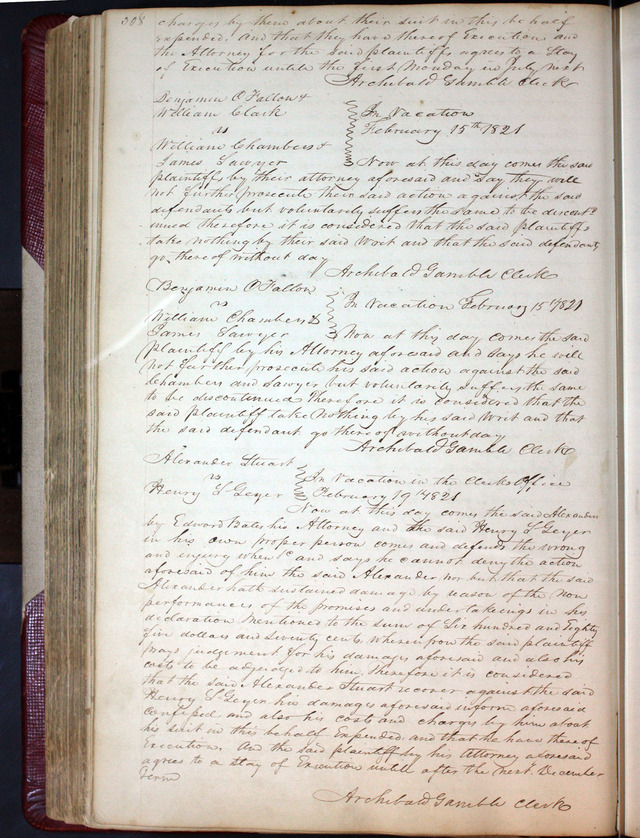 308
charges by them about their suit in this behalf
expended. And that they have thereof Execution and
the Attorney for the Said plaintiffs agrees to a Stay
of Execution until the first Monday in July next
Archibald Gamble Clerk
Benjamin O Fallon &
William Clark
vs
William Chambers &
James Sawyer
In Vacation
February 15th 1821
Now at this day comes the said
plaintiffs by their attorney aforesaid and Say they will
not further prosecute their said action against the said
defendants but voluntarily suffers the same to be discont
inued therefore it is considered that the said plaintiffs
take nothing by their said Writ and that the said defendants
go thereof without day
Archibald Gamble Clerk
Benjamin O Fallon
vs
William Chambers &
James Sawyer
In Vacation February 15th 1821
Now at this day comes the said
plaintiff by his Attorney aforesaid and says he will
not further prosecute his said action against the said
Chambers and Sawyer but voluntarily suffers the same
to be discontinued Therefore it is considered that the
said plaintiff take nothing by his said Writ and that
the said defendant go thereof without day
Archibald Gamble Clerk
Alexander Stuart
vs
Henry S Geyer
In Vacation in the Clerks Office
February 19th 1821
Now at this day comes the said Alexander
by Edward Bates his Attorney and the said Henry S Geyer
in his own proper person comes and defends the wrong
and injury when &c and says he cannot deny the action
aforesaid of him the said Alexander nor but that the said
Alexander hath sustained damage by reason of the Non
performance of the promises and undertakeings in his
declaration mentioned to the sum of Six hundred and Eighty
five dollars and seventy cents wherefrom the said plaintiff
prays judgement for his damages aforesaid and also his
costs to be adjudged to him, therefore it is considered
that the said Alexander Stuart recover against the said
Henry S Geyer his damages aforesaid in form aforesaid
confessed and also his costs and charges by him about
his suit in this behalf Expended and that he have thereof
Execution. And the said plaintiff by his Attorney aforesaid
agrees to a Stay of Execution until after the next December
Term
Archibald Gamble Clerk